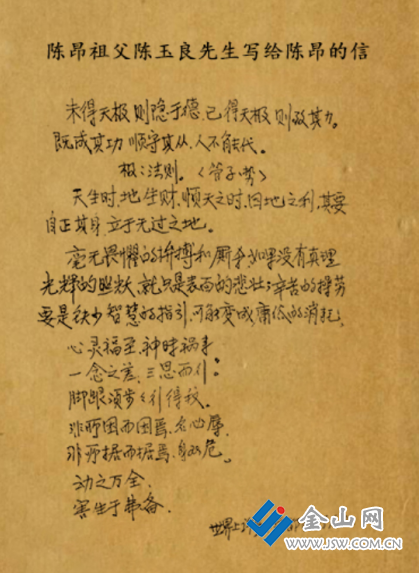 陈昂祖父陈玉良先生写给陈昂的信
未得天极则隐于德，已得天极则致其力。
既成其功，顺守其从，人不能代。
极：法则。《管子势》
天生时，地生财，顺天之时，因地之利，其要
自正其身，立于无过之地。
毫无畏惧的拚搏和厮争，如果没有真理
光辉的照耀，就只是表面的悲壮；辛苦的操劳
要是缺少智慧的指引，可能变成庸俗的消耗。
心灵福至，神昧祸来
一念之差，三思而行。
脚跟须步步行得稳。
非所困而困焉，名必辱，
非所据而据焉，身必危。
动之万全
害生于弗备。
世界上
金山网